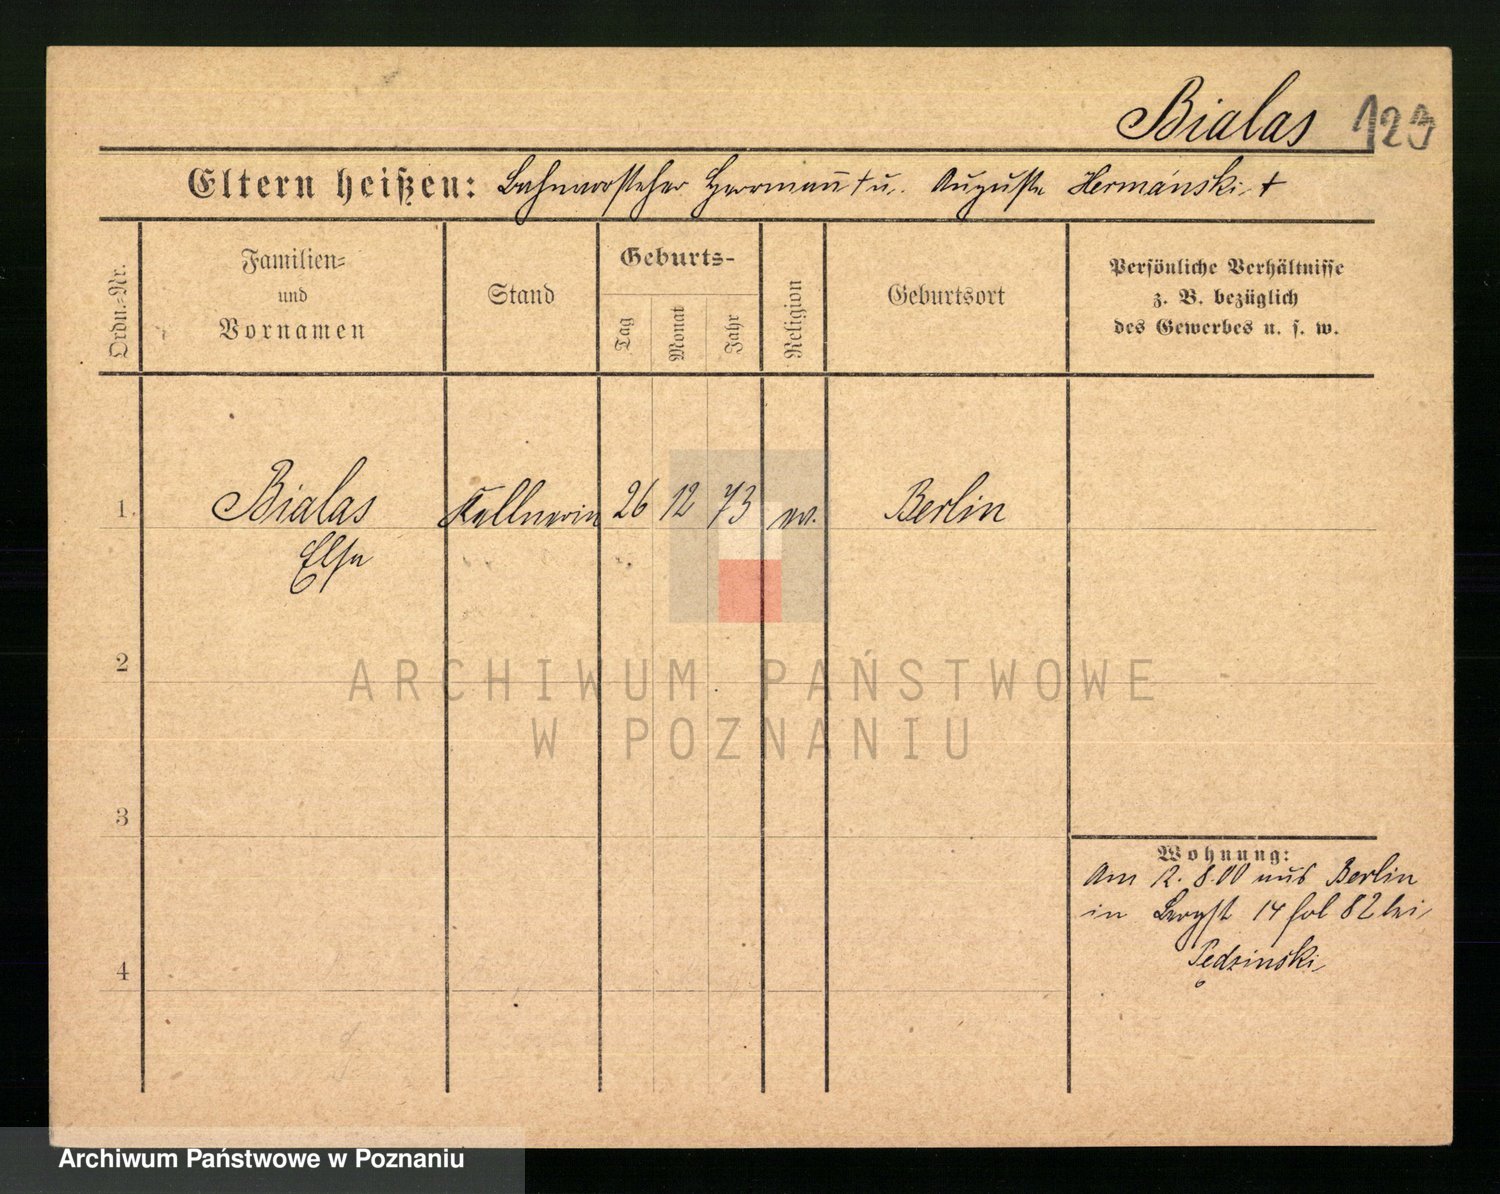 Bialas 123
Eltern heißen: Bahnvorsteher Herrmann † u. Auguste Hermánski †
Ordn.=Nr.
Familien=
und
Vornamen
Stand
Geburts-
Tag
Monat
Jahr
Religion
Geburtsort
Persönliche Verhältnisse
z. B. bezüglich
des Gewerbes u. s. w.
1. Bialas Kellnerin 26 12 73 ev. Berlin
Elsa
2
ARCHIWUM PAŃSTWOWE
W POZNANIU
3
Wohnung:
Am 12. 8. 00 aus Berlin
in Bergst 14 fol 82 bei
Pędzinski
4
Archiwum Państwowe w Poznaniu